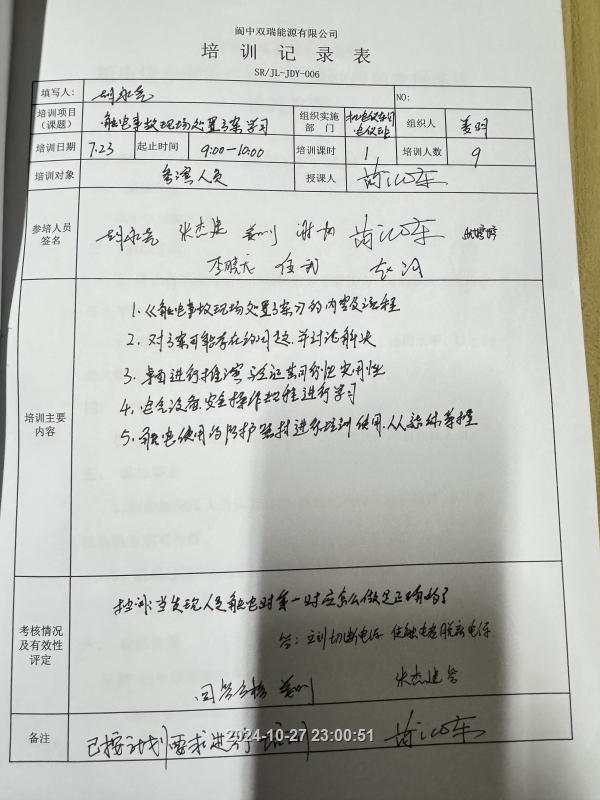 阆中双瑞能源有限公司
培训记录表
SR/JL-JDY-006
填写人： NO：
培训项目（课题） 触电事故现场处置方案学习 组织实施部门 机电仪车间电仪班 组织人 姜明
培训日期 7.23 起止时间 9:00—10:00 培训课时 1 培训人数 9
培训对象 参演人员 授课人
参培人员签名 张杰建
任武
培训主要内容
1.《触电事故现场处置方案》的内容及流程
2. 对方案可能存在的问题，并讨论解决
3. 桌面进行推演验证其可行性实用性
4. 电气设备安全操作规程进行学习
5. 触电使用的防护器材进行培训使用，人人熟练掌握
考核情况及有效性评定
提问：当发现人员触电时第一时应怎么做是正确的？
答：立刻切断电源 使触电者脱离电源
回答合格 张杰建答
备注 已按计划要求进行培训
2024-10-27 23:00:51